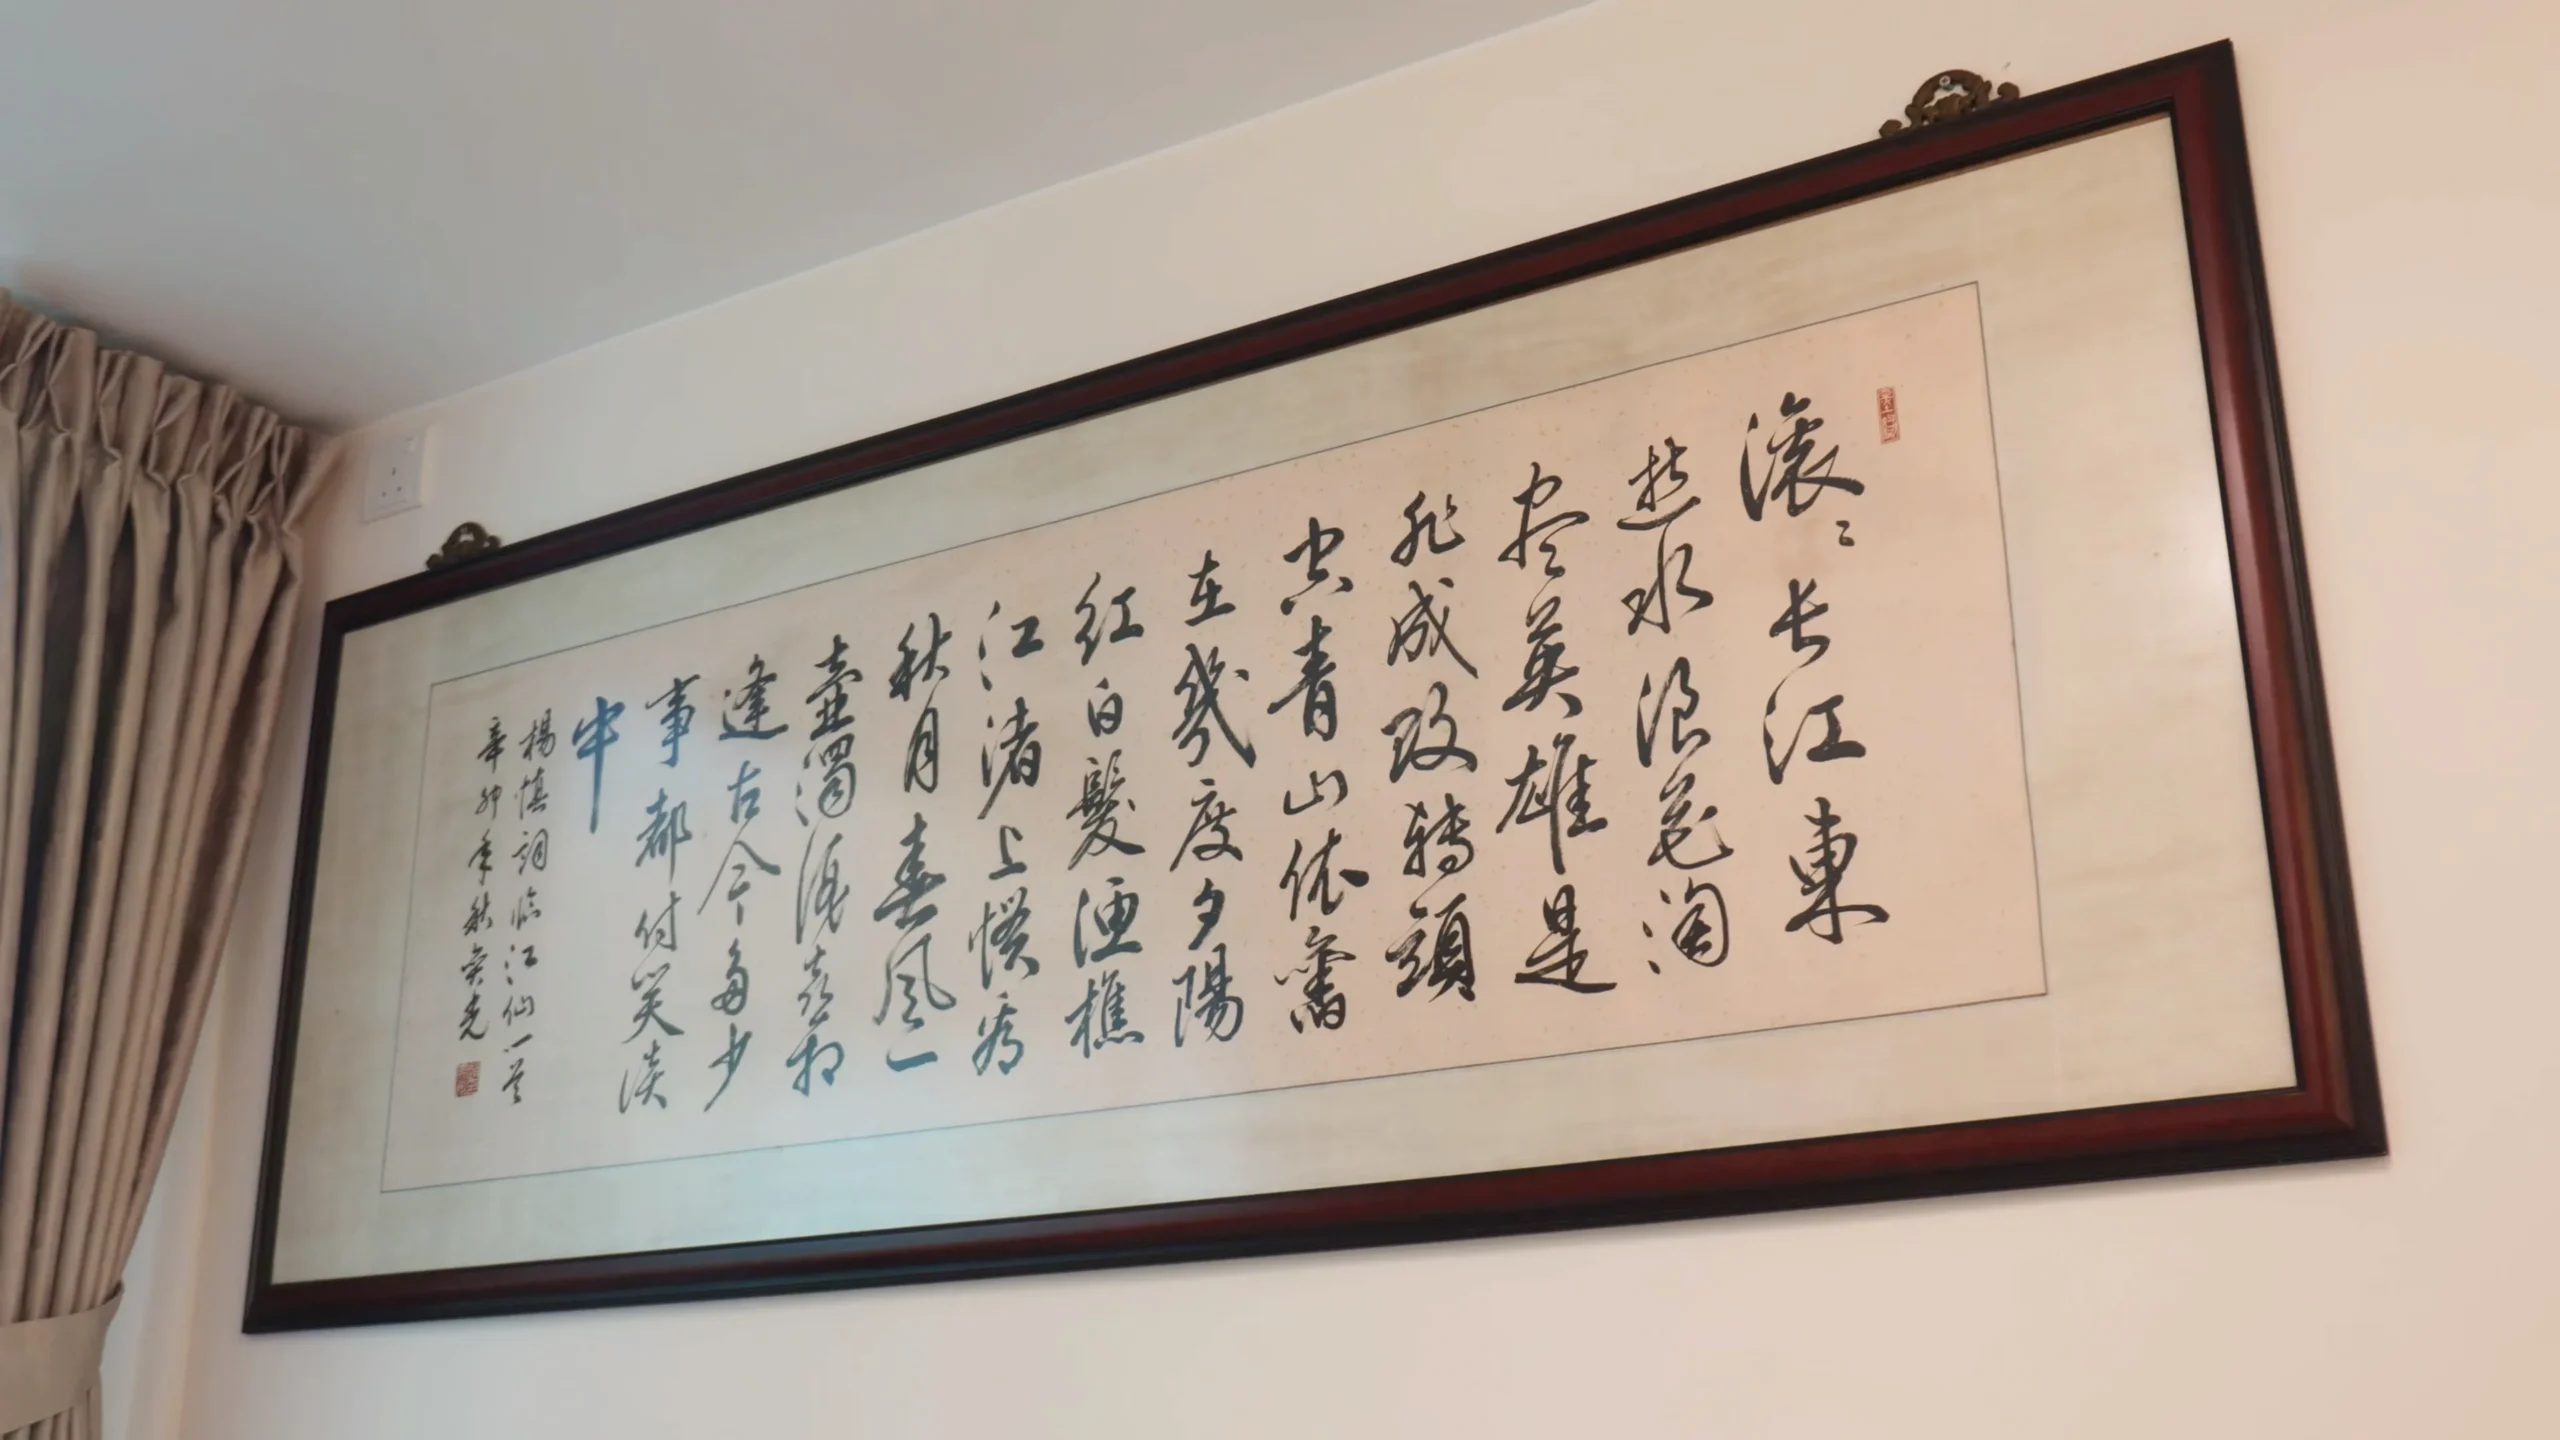 滚〻长江東
逝水浪花淘
尽英雄是
非成敗转頭
空青山依舊
在幾度夕陽
红白髮渔樵
江渚上惯看
秋月春风一
壶濁酒喜相
逢古今多少
事都付笑淡
中
楊慎詞临江仙一首
辛卯年秋奕光